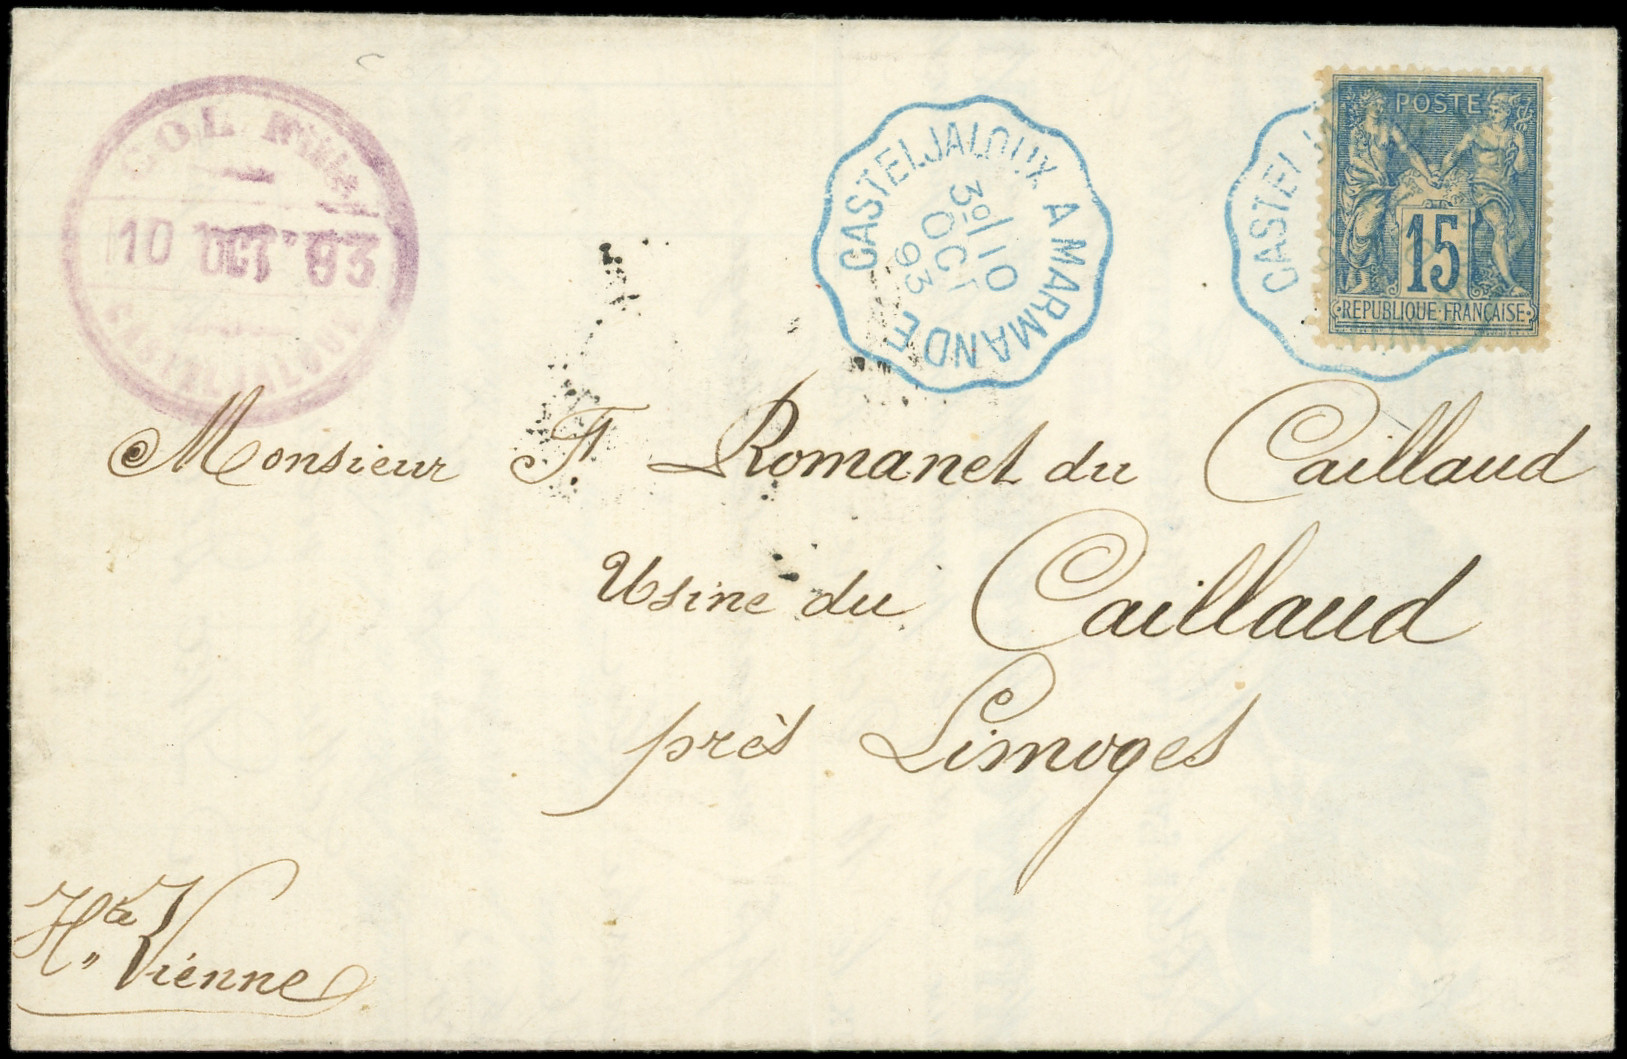 10 OCT 93
CASTELJALOUX
CASTELJALOUX A MARMANDE
3º/10
OCT
93
CASTELJ
POSTE
15
REPUBLIQUE FRANÇAISE
Monsieur F. Romanet du Caillaud
Usine du Caillaud
près Limoges
Hte Vienne